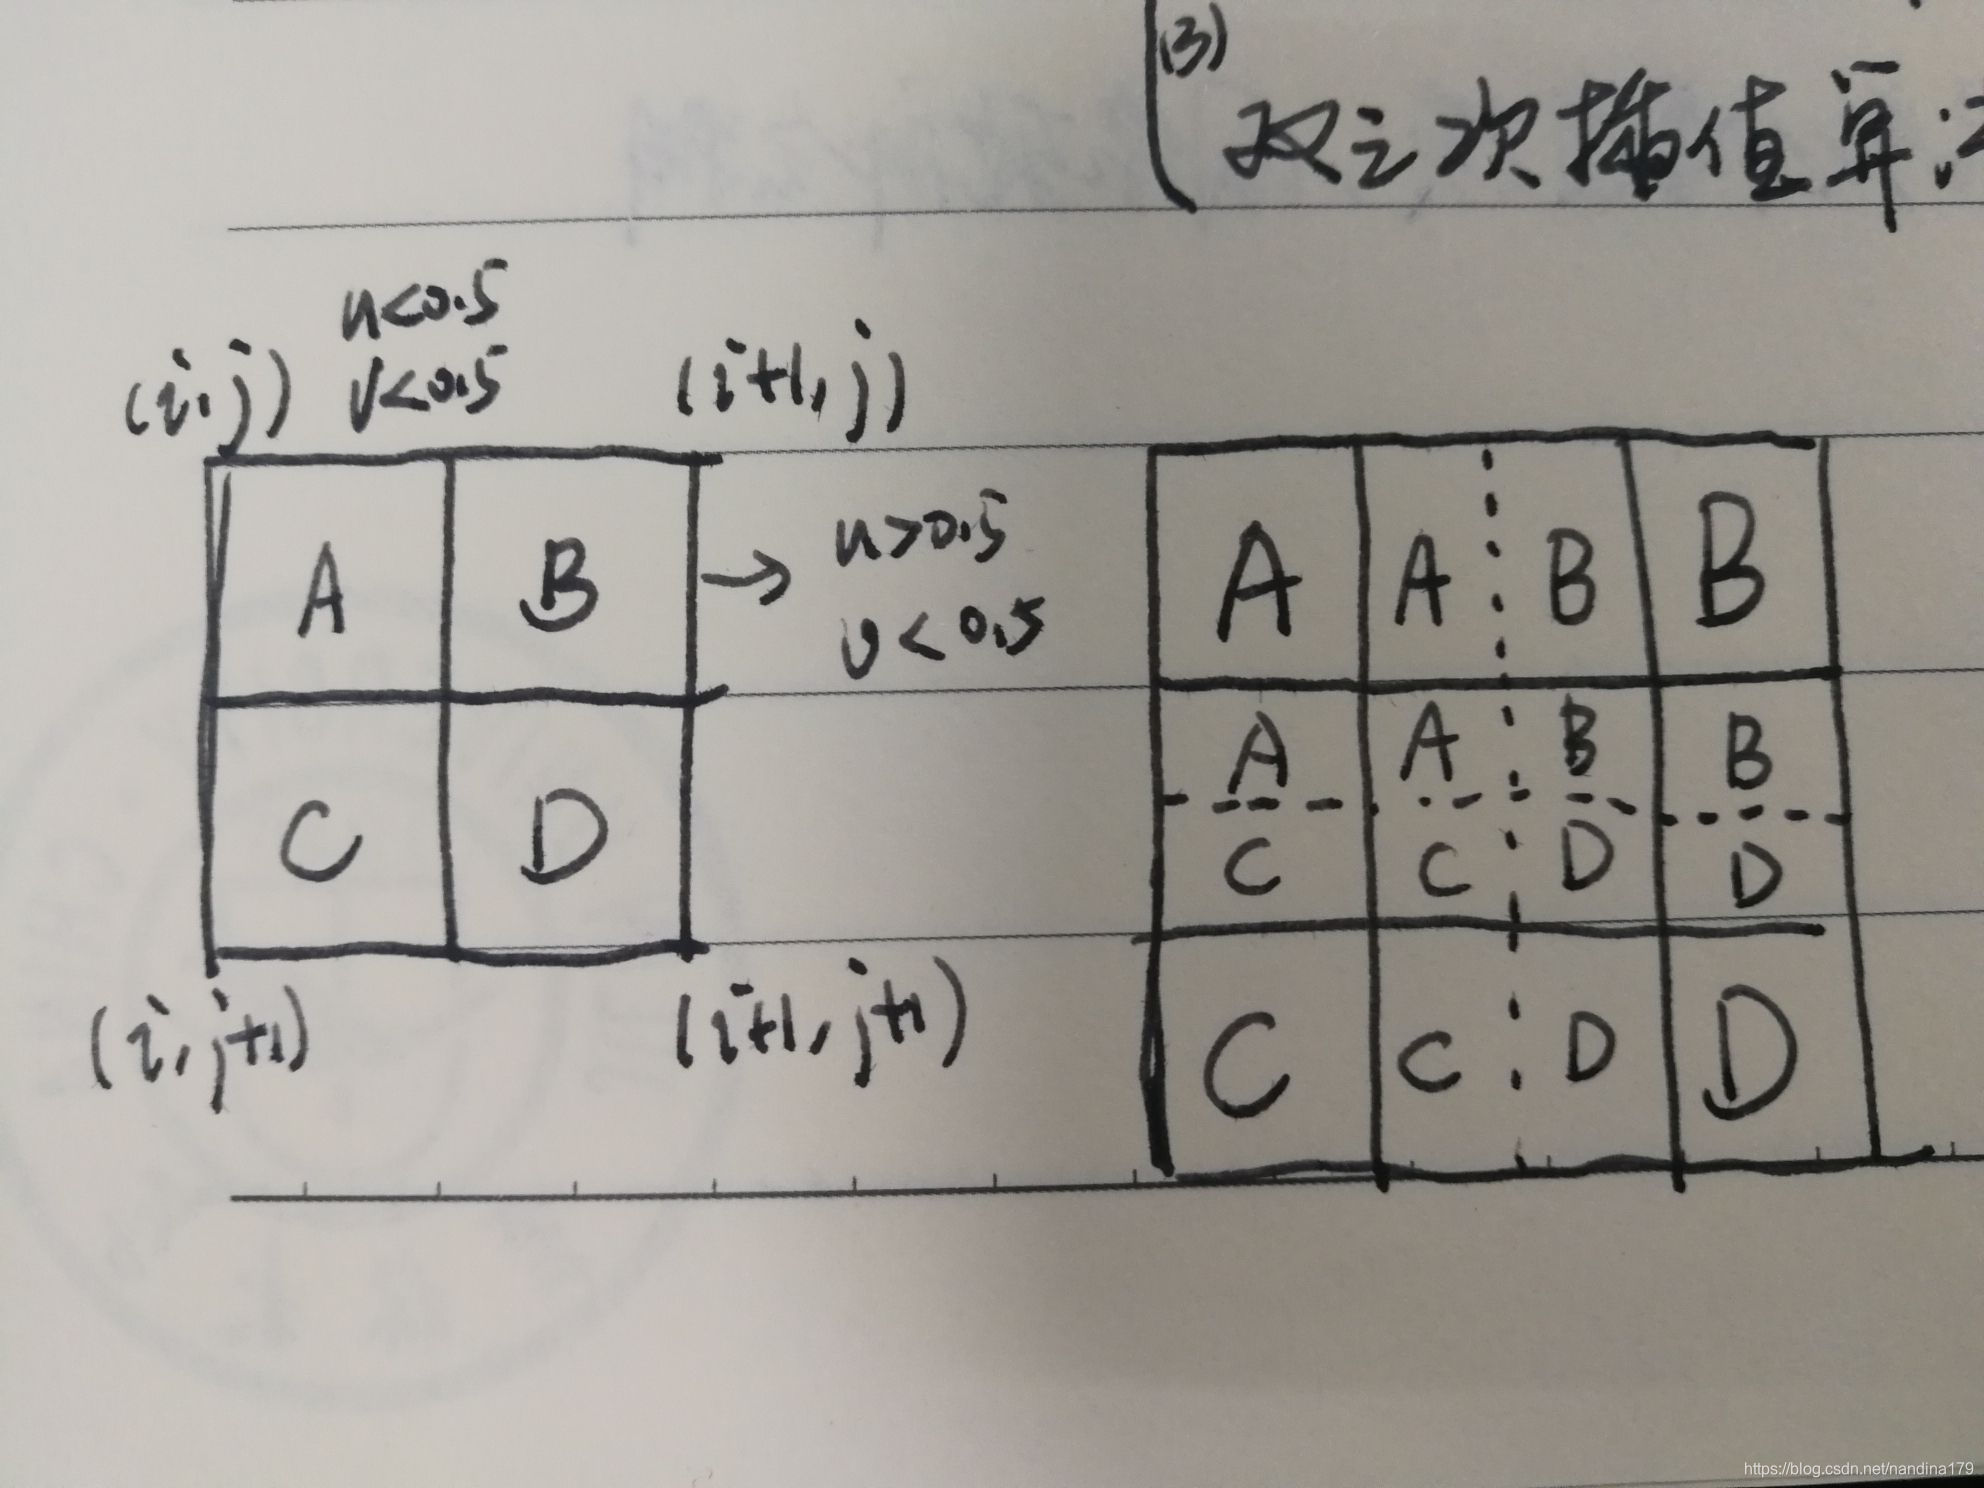 (3)
双三次插值算法
u<0.5
v<0.5
(i,j)
(i+1,j)
A B
u>0.5
v<0.5
C D
(i,j+1)
(i+1,j+1)
A A B B
A A B B
C C D D
C C D D
https://blog.csdn.net/nandina179